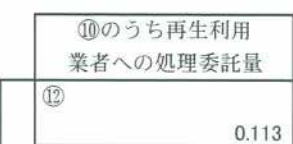 ⑩のうち再生利用
業者への処理委託量
⑫
0.113